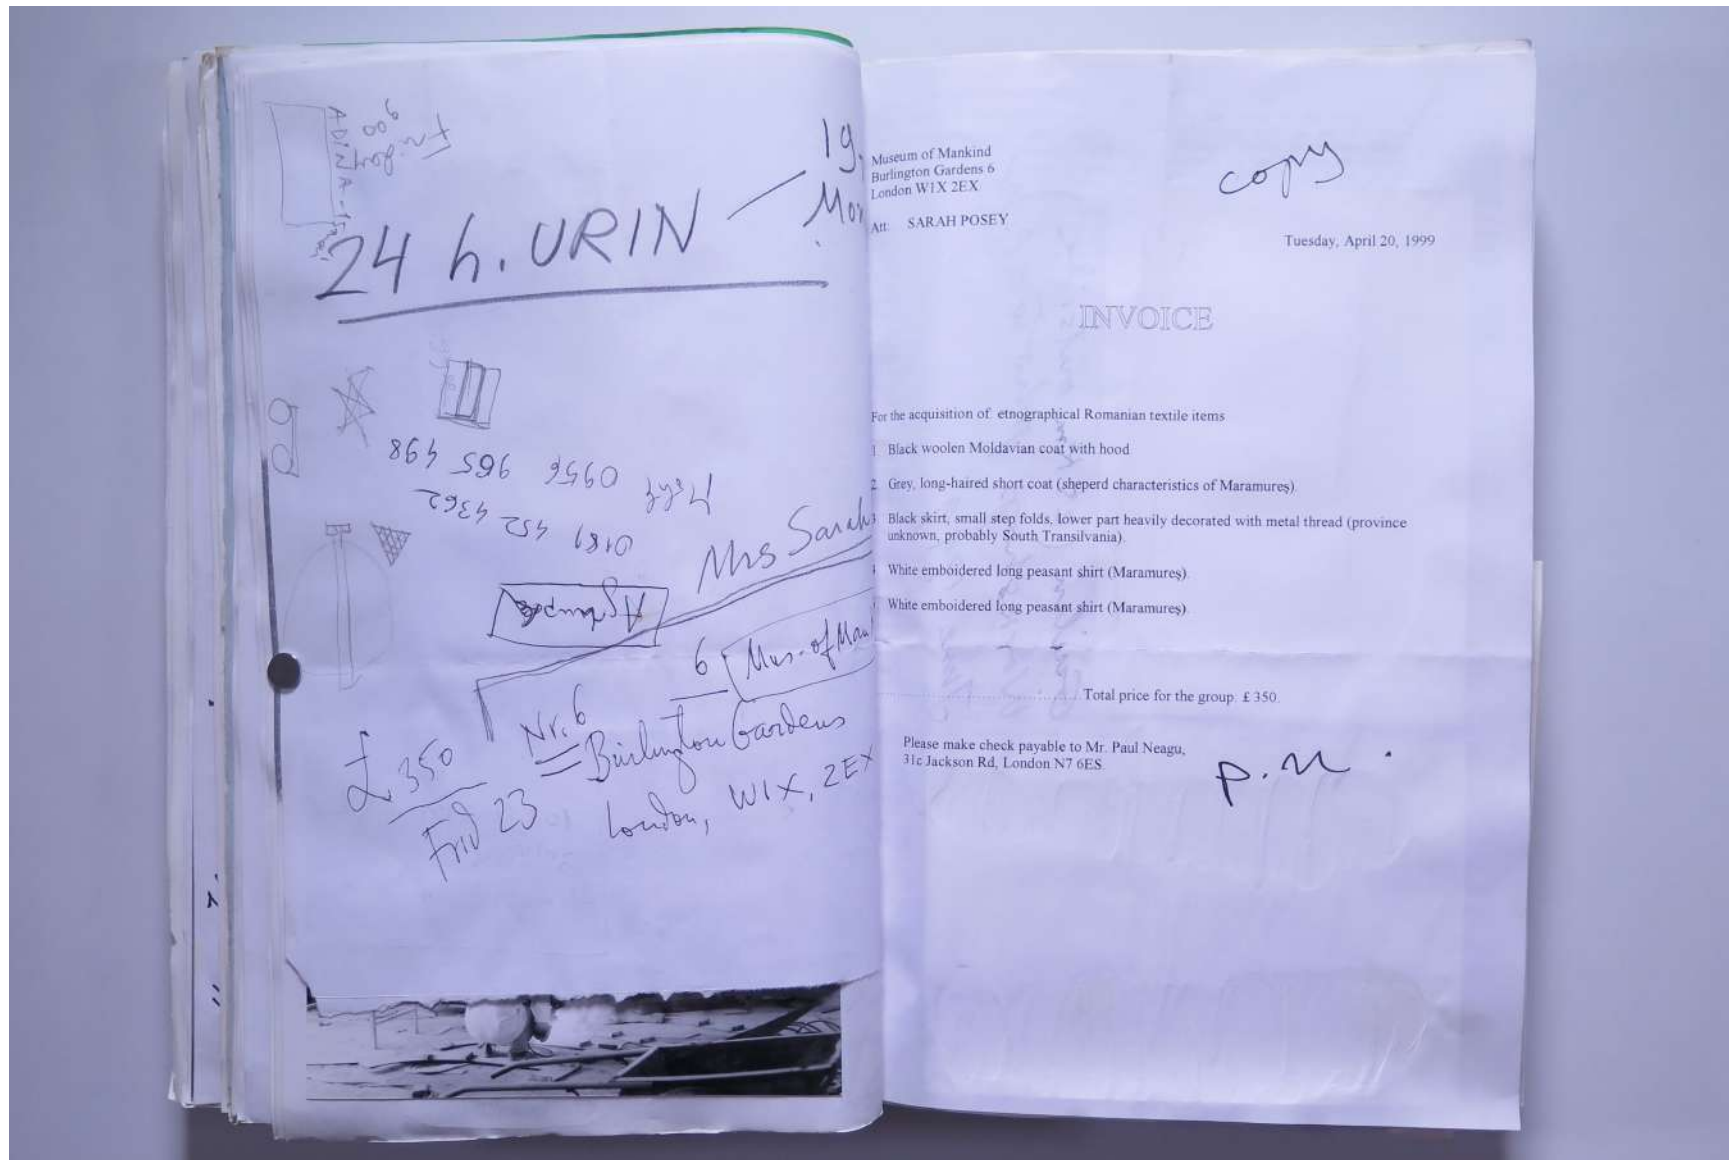 ADINA
900
Fri
24 h. URIN — 19.
Mon
0956 965 498
0181 452 4362
Mrs Sarah
6 Mus. of Man
Nr. 6
Burlington Gardens
London, W1X, 2EX
£ 350
Frid 23
Museum of Mankind
Burlington Gardens 6
London W1X 2EX
Att: SARAH POSEY
copy
Tuesday, April 20, 1999
INVOICE
For the acquisition of etnographical Romanian textile items
1. Black woolen Moldavian coat with hood
2. Grey, long-haired short coat (sheperd characteristics of Maramureş).
Black skirt, small step folds, lower part heavily decorated with metal thread (province
unknown, probably South Transilvania).
White emboidered long peasant shirt (Maramureş)
White emboidered long peasant shirt (Maramureş)
Total price for the group. £ 350.
Please make check payable to Mr. Paul Neagu,
31c Jackson Rd, London N7 6ES.
p.n.